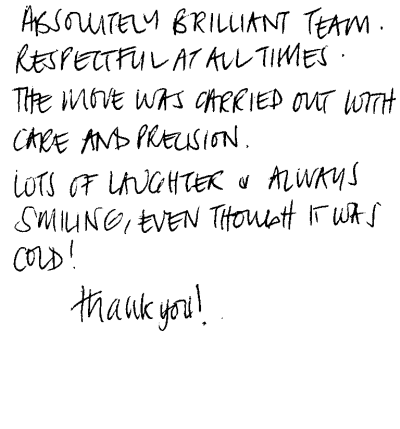 ABSOLUTELY BRILLIANT TEAM.
RESPECTFUL AT ALL TIMES.
THE MOVE WAS CARRIED OUT WITH
CARE AND PRECISION.
LOTS OF LAUGHTER & ALWAYS
SMILING, EVEN THOUGH IT WAS
COLD!
thank you!